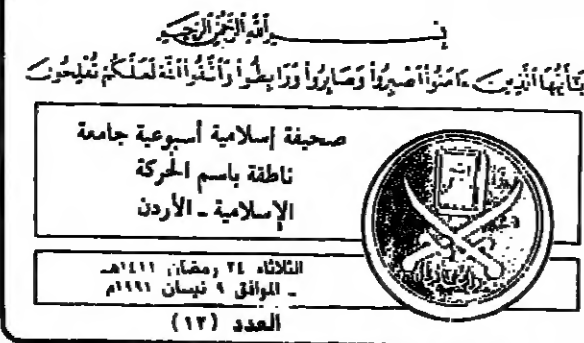 بِسْمِ اللَّهِ الرَّحْمَٰنِ الرَّحِيمِ
يَٰٓأَيُّهَا ٱلَّذِينَ ءَامَنُوا۟ ٱصْبِرُوا۟ وَصَابِرُوا۟ وَرَابِطُوا۟ وَٱتَّقُوا۟ ٱللَّهَ لَعَلَّكُمْ تُفْلِحُونَ
صحيفة إسلامية أسبوعية جامعة
ناطقة باسم الحركة
الإسلامية ـ الأردن
الثلاثاء ٢٤ رمضان ١٤١١هـ
ـ الموافق ٩ نيسان ١٩٩١م
العدد (١٣)